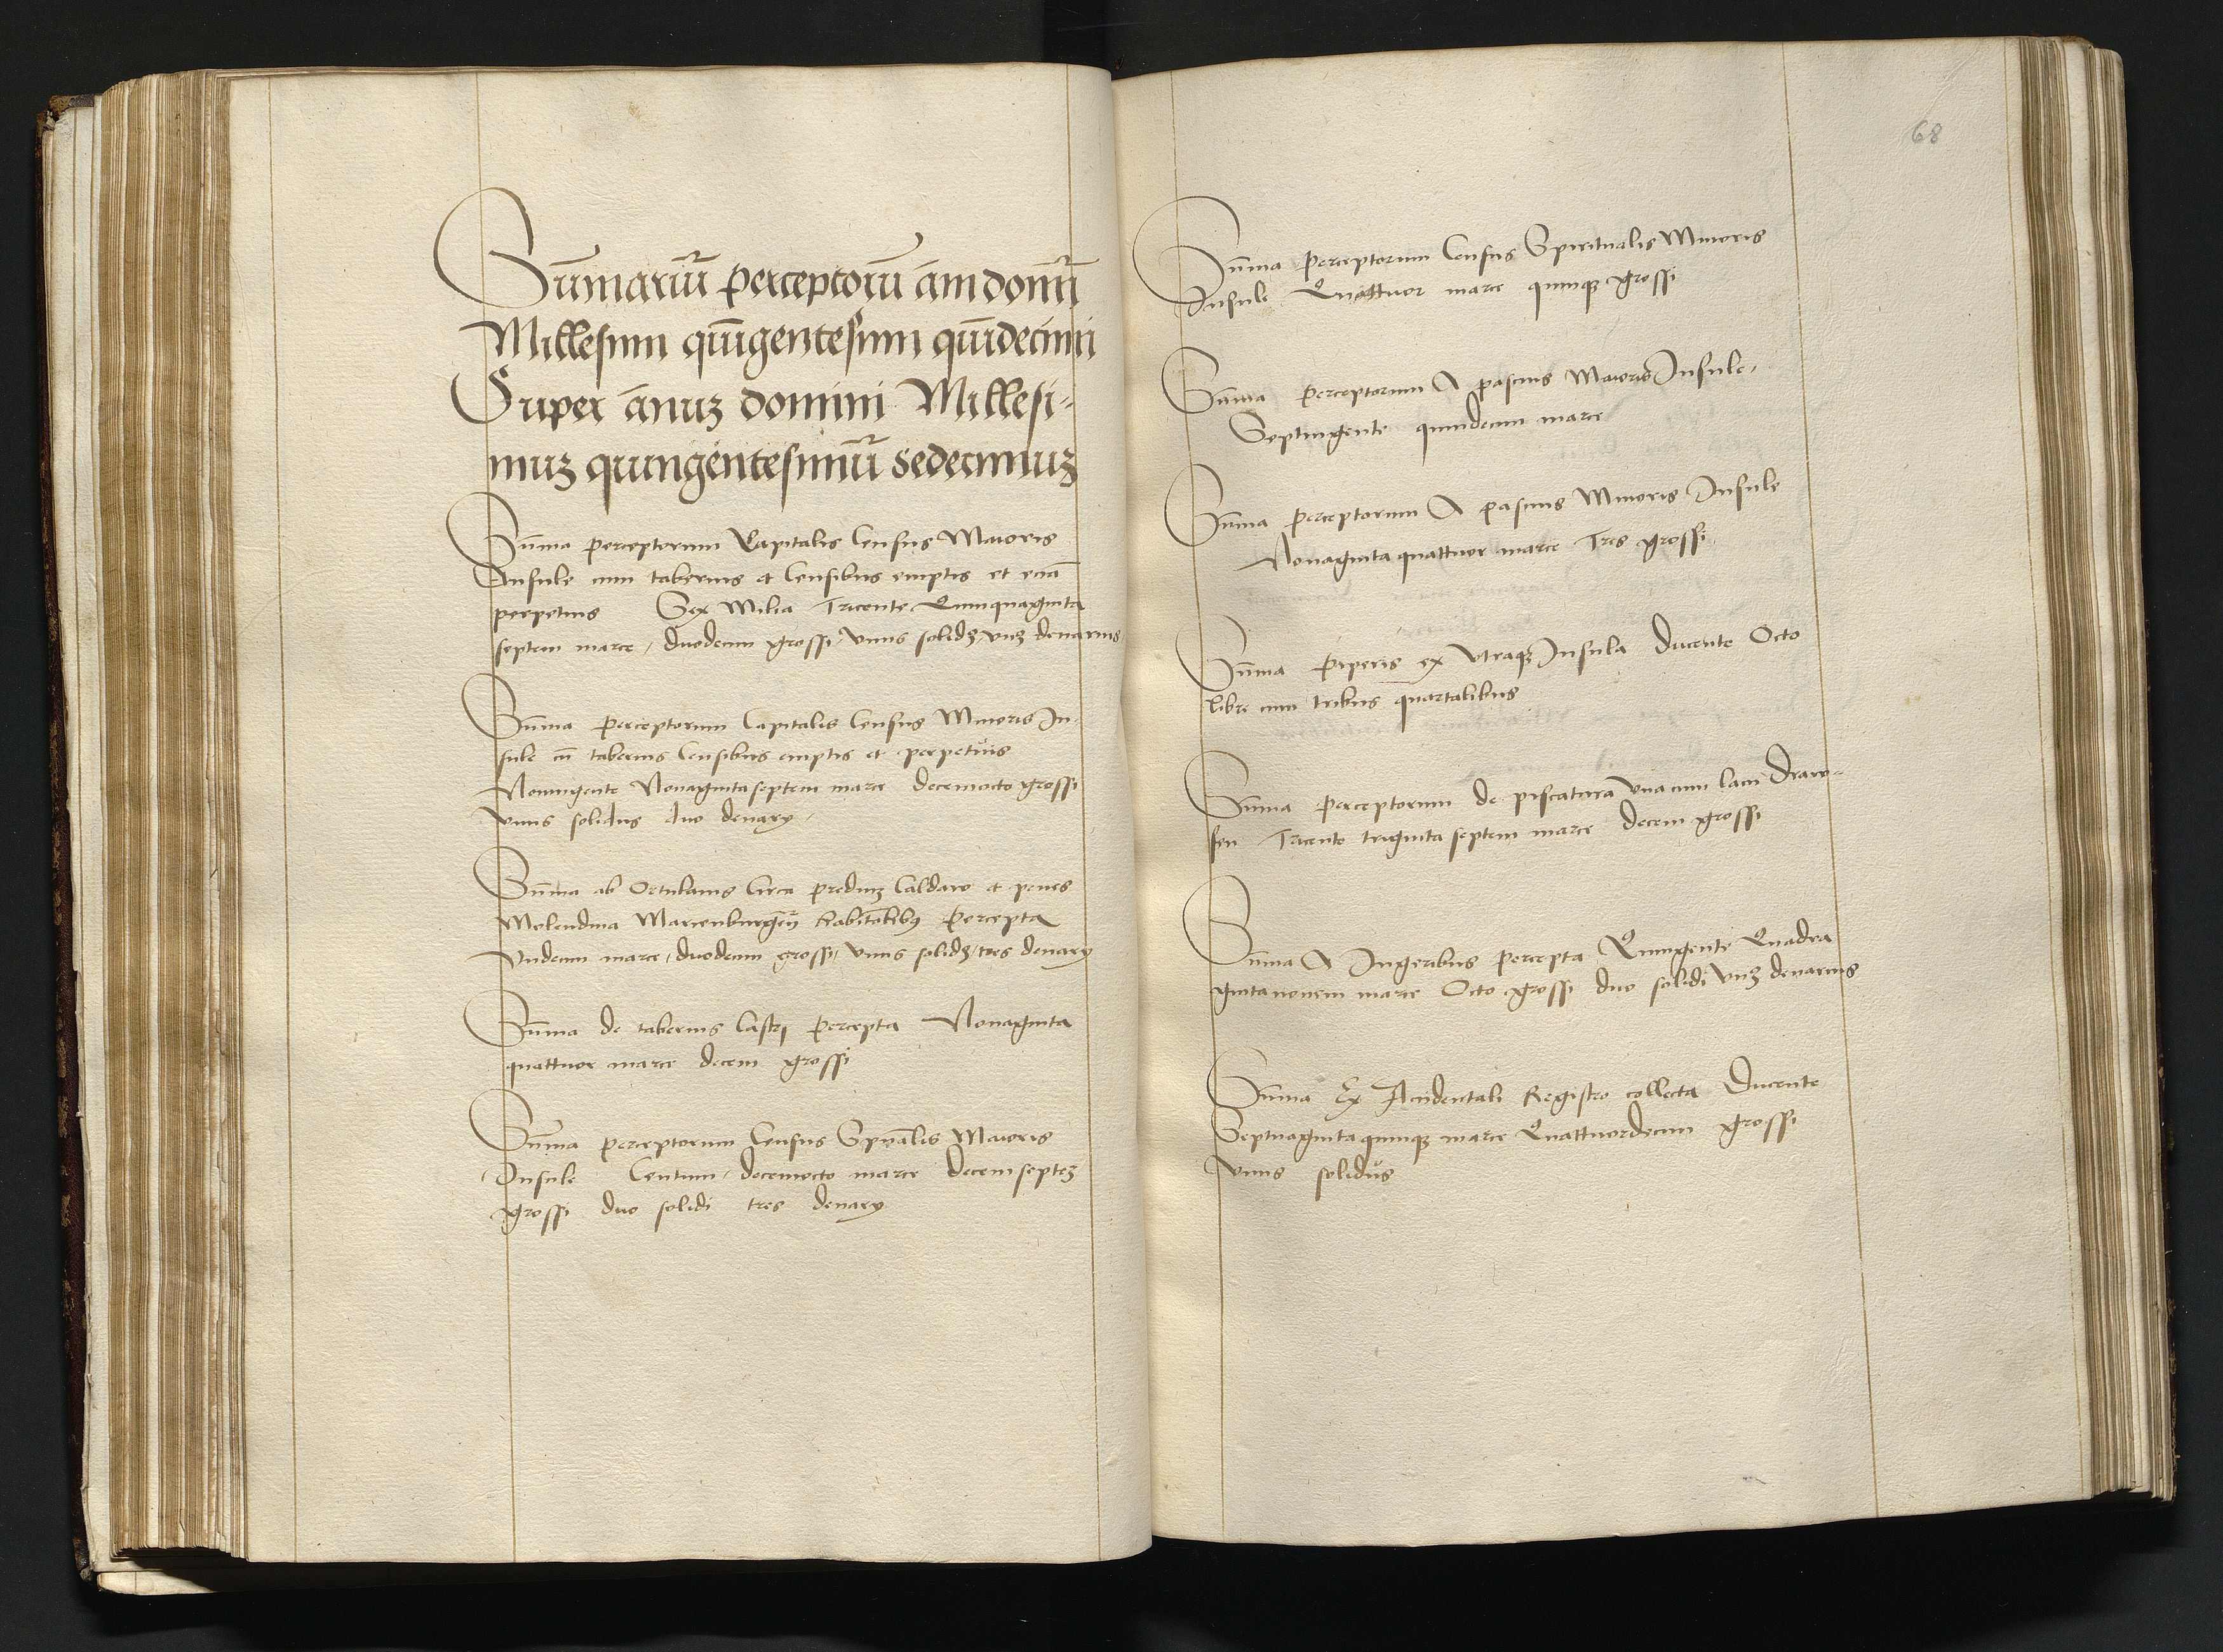 Sūmariū perceptorū āni domī
Millesimi quīgentesimi quīdecimi
Super ānuʒ domini Millesi-
muʒ quingentesimū sedecimuʒ
Sūma perceptorum Capitalis Census Maioris
Insule cum tabernis et Censibus emptis et eciā
perpetuis Sex Milia Tricente Quinquaginta
septem marce, duodecim grossi, vnus solidʒ, vnʒ denarius
Sūma perceptorum Capitalis Census Minoris In-
sule cū tabernis Censibus emptis et perpetuis
Noningente Nonaginta septem marce decemocto grossi
vnus solidus duo denarÿ.
Sūma ab Ortulanis Circa prediuʒ Caldaro et penes
Molendina Marienburgeñ habitātibꝰ percepta
Vndecim marce, duodecim grossi, vnus solidʒ, tres denarÿ
Sūma de tabernis Castrj percepta Nonaginta
quattuor marce decem grossi
Sūma perceptorum Census Spūalis Maioris
Insule Centum, decemocto marce decemsepteʒ
grossi duo solidi tres denarÿ
68
Sūma perceptorum Census Spiritualis Minoris
Insule Quattuor marce quinqʒ grossi
Sūma perceptorum A pascuis Maioris Insule,
Septingente quindecim marce
Sūma perceptorum A pascuis Minoris Insule
Nonaginta quattuor marce Tres grossi
Sūma piperis ex vtraqʒ Insula ducente Octo
libre cum tribus quartalibus
Sūma perceptorum de piscatura vna cum lacu Draw-
sen Tricente triginta septem marce decem grossi
Sūma A Iugeribus percepta Quingente Quadra
ginta nouem marce Octo grossi duo solidi vnʒ denarius
Sūma Ex Accidentali Registro collecta Ducente
Septuaginta quinqʒ marce Quattuordecim grossi
vnus solidus